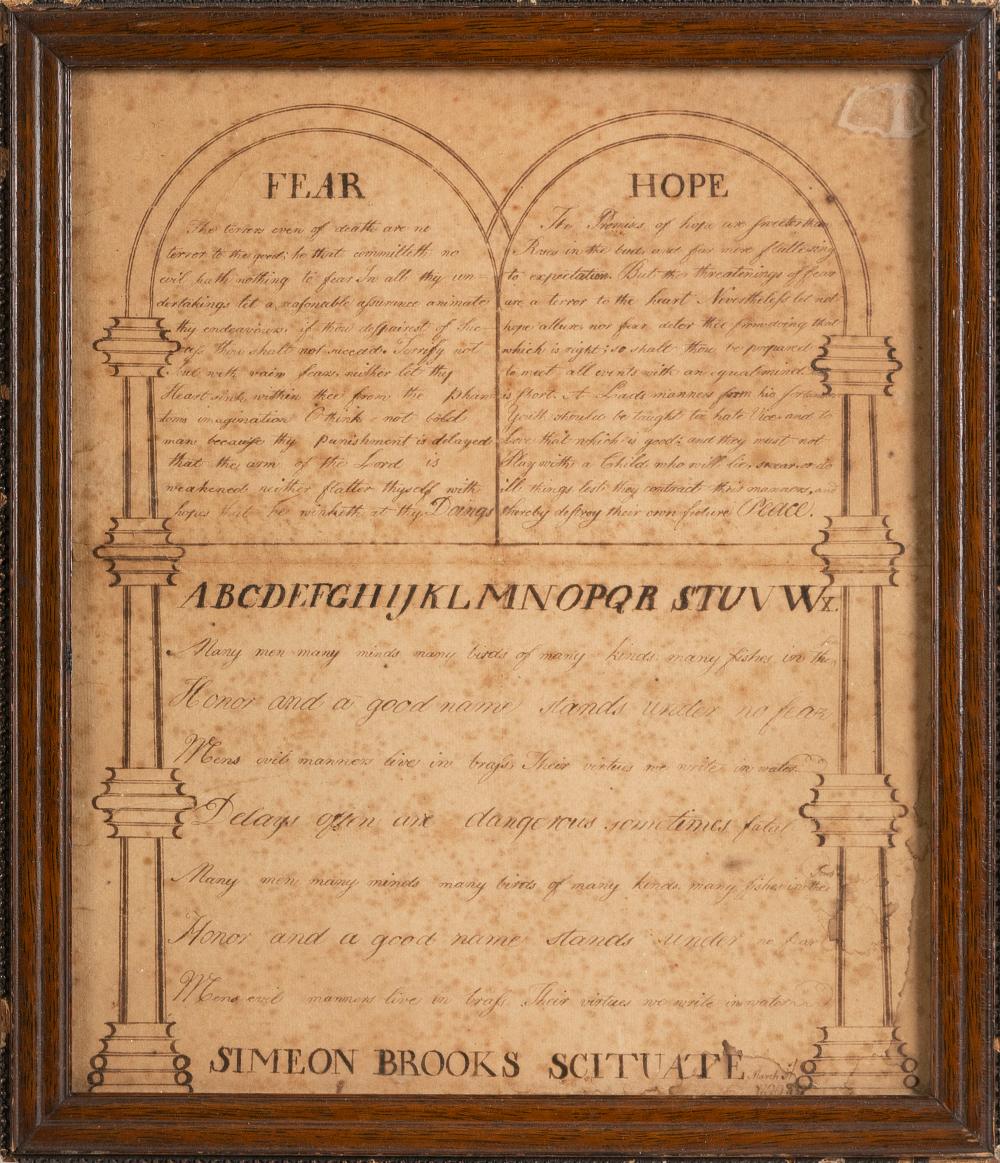 FEAR
The terrors even of death are no
terror to the good; he that committeth no
evil hath nothing to fear In all thy un-
dertakings let a reasonable assurance animate
thy endeavours, if thou desspairest of Suc-
cess thou shalt not succeed. Terrify not
with vain fears, neither let thy
Heart sink within thee from the phan
toms imagination O think not bold
man because thy punishment is delayed
that the arm of the Lord is
weakened neither flatter thyself with
hopes that he winketh at thy Doings
HOPE
The Promises of hope are sweeter than
Roses in the bud and far more flattering
to expectation. But the threatenings of fear
are a terror to the heart Nevertheless let not
hope allure, nor fear deter thee from doing that
which is right; so shalt thou be prepared
to meet all events with an equal mind.
is short. A Lads manners form his fortune
Youth should be taught to hate Vice and to
Love that which is good; and they must not
Play with a Child who will lie, swear or do
ill things lest they contract their manners, and
thereby destroy their own future Peace.
ABCDEFGHIJKLMNOPQRSTUVWX.
Many men many minds many birds of many kinds many fishes in the
Honor and a good name stands under no fear
Mens evil manners live in brass Their virtues we write in water
Delays often are dangerous sometimes fatal
Many men many minds many birds of many kinds many fishes in the
Honor and a good name stands under no fear
Mens evil manners live in brass. Their virtues we write in water
SIMEON BROOKS SCITUATE
March